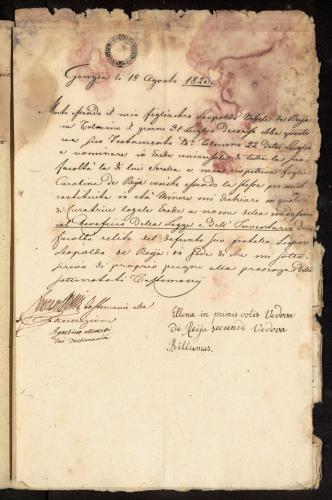 Gorizia li 18 Agosto 1823.
Morto essendo il mio figliastro Leopoldo de Reja
in Tolmino il giorno 21 Luglio decorso ebbe questo
con suo Testamento D.to Tolmino 22 detto Luglio
a nominare in erede universale di tutta la sua
facoltà la di lui Sorella e mia rispettiva figlia
Carolina de Reja essendo la stessa per anche
costituita in età Minore mi dichiaro in qualità
di Curatrice legale Erede a nome della medesima
col beneficio della Legge e dell' Inventario della
facoltà relitta del defunto suo fratello Signor
Leopoldo de Reja in fede di che mi sotto
scrivo di proprio pugno alla presenza delli
sottonotati Testimonj
Testimonio alla
sottoscrizione
Agostino
Testimonio
Ellena in primis votis Vedova
de Reja secundi Vedova
Billumas.